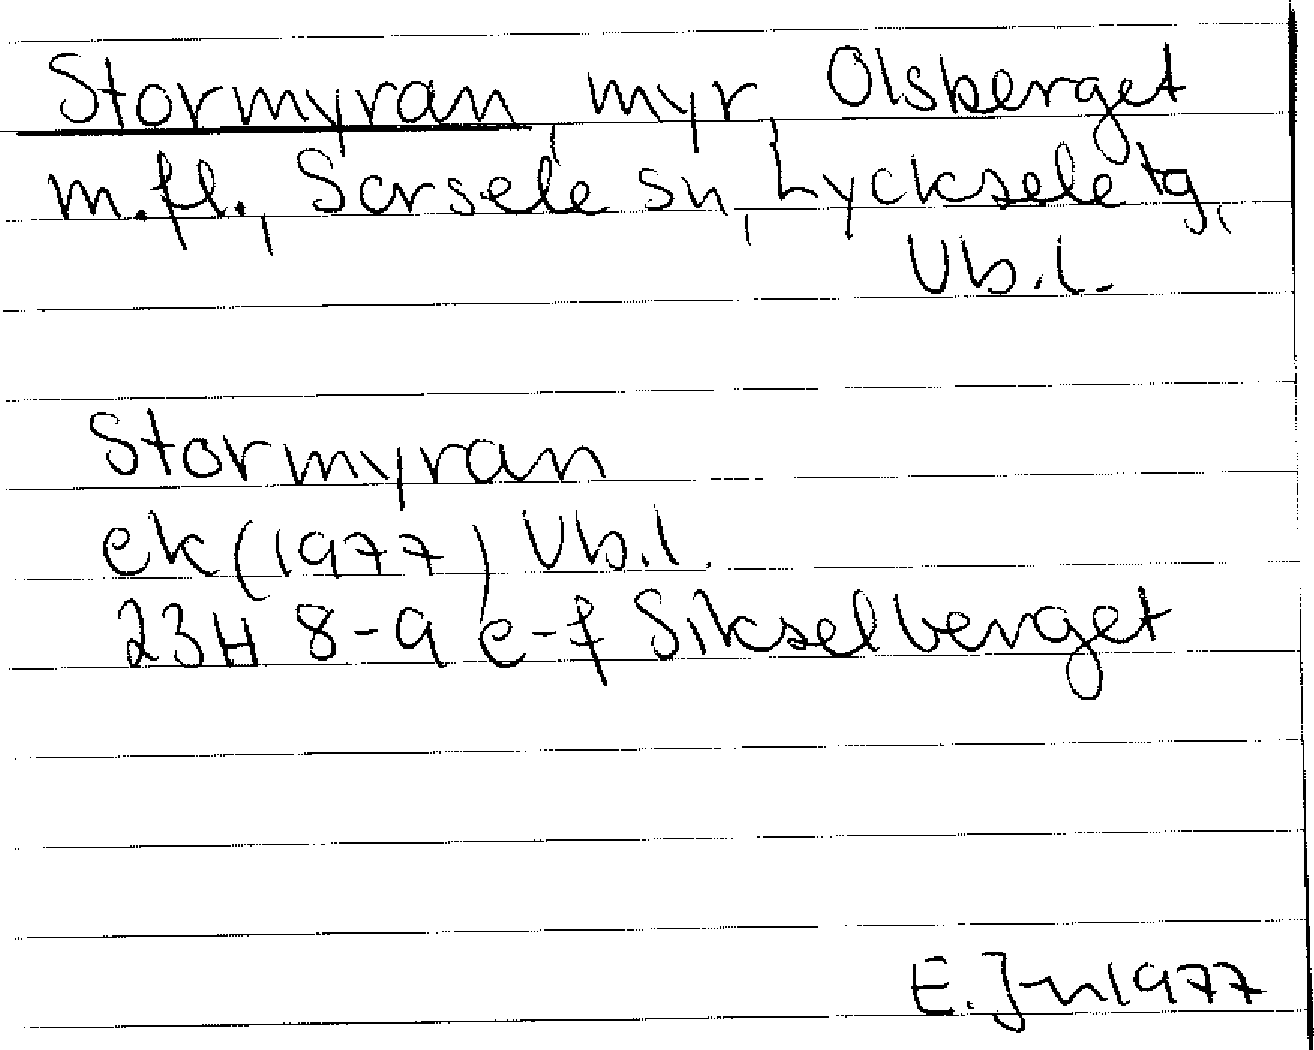 Stormyran, myr, Olsberget
m.fl., Sorsele sn, Lycksele tg,
Vb.l.
Stormyran
ek (1977) Vb.l.
23H 8-9 e-f Sikselberget
E. J-n 1977